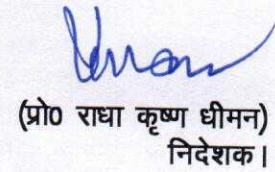 (प्रो0 राधा कृष्ण धीमन)
निदेशक।